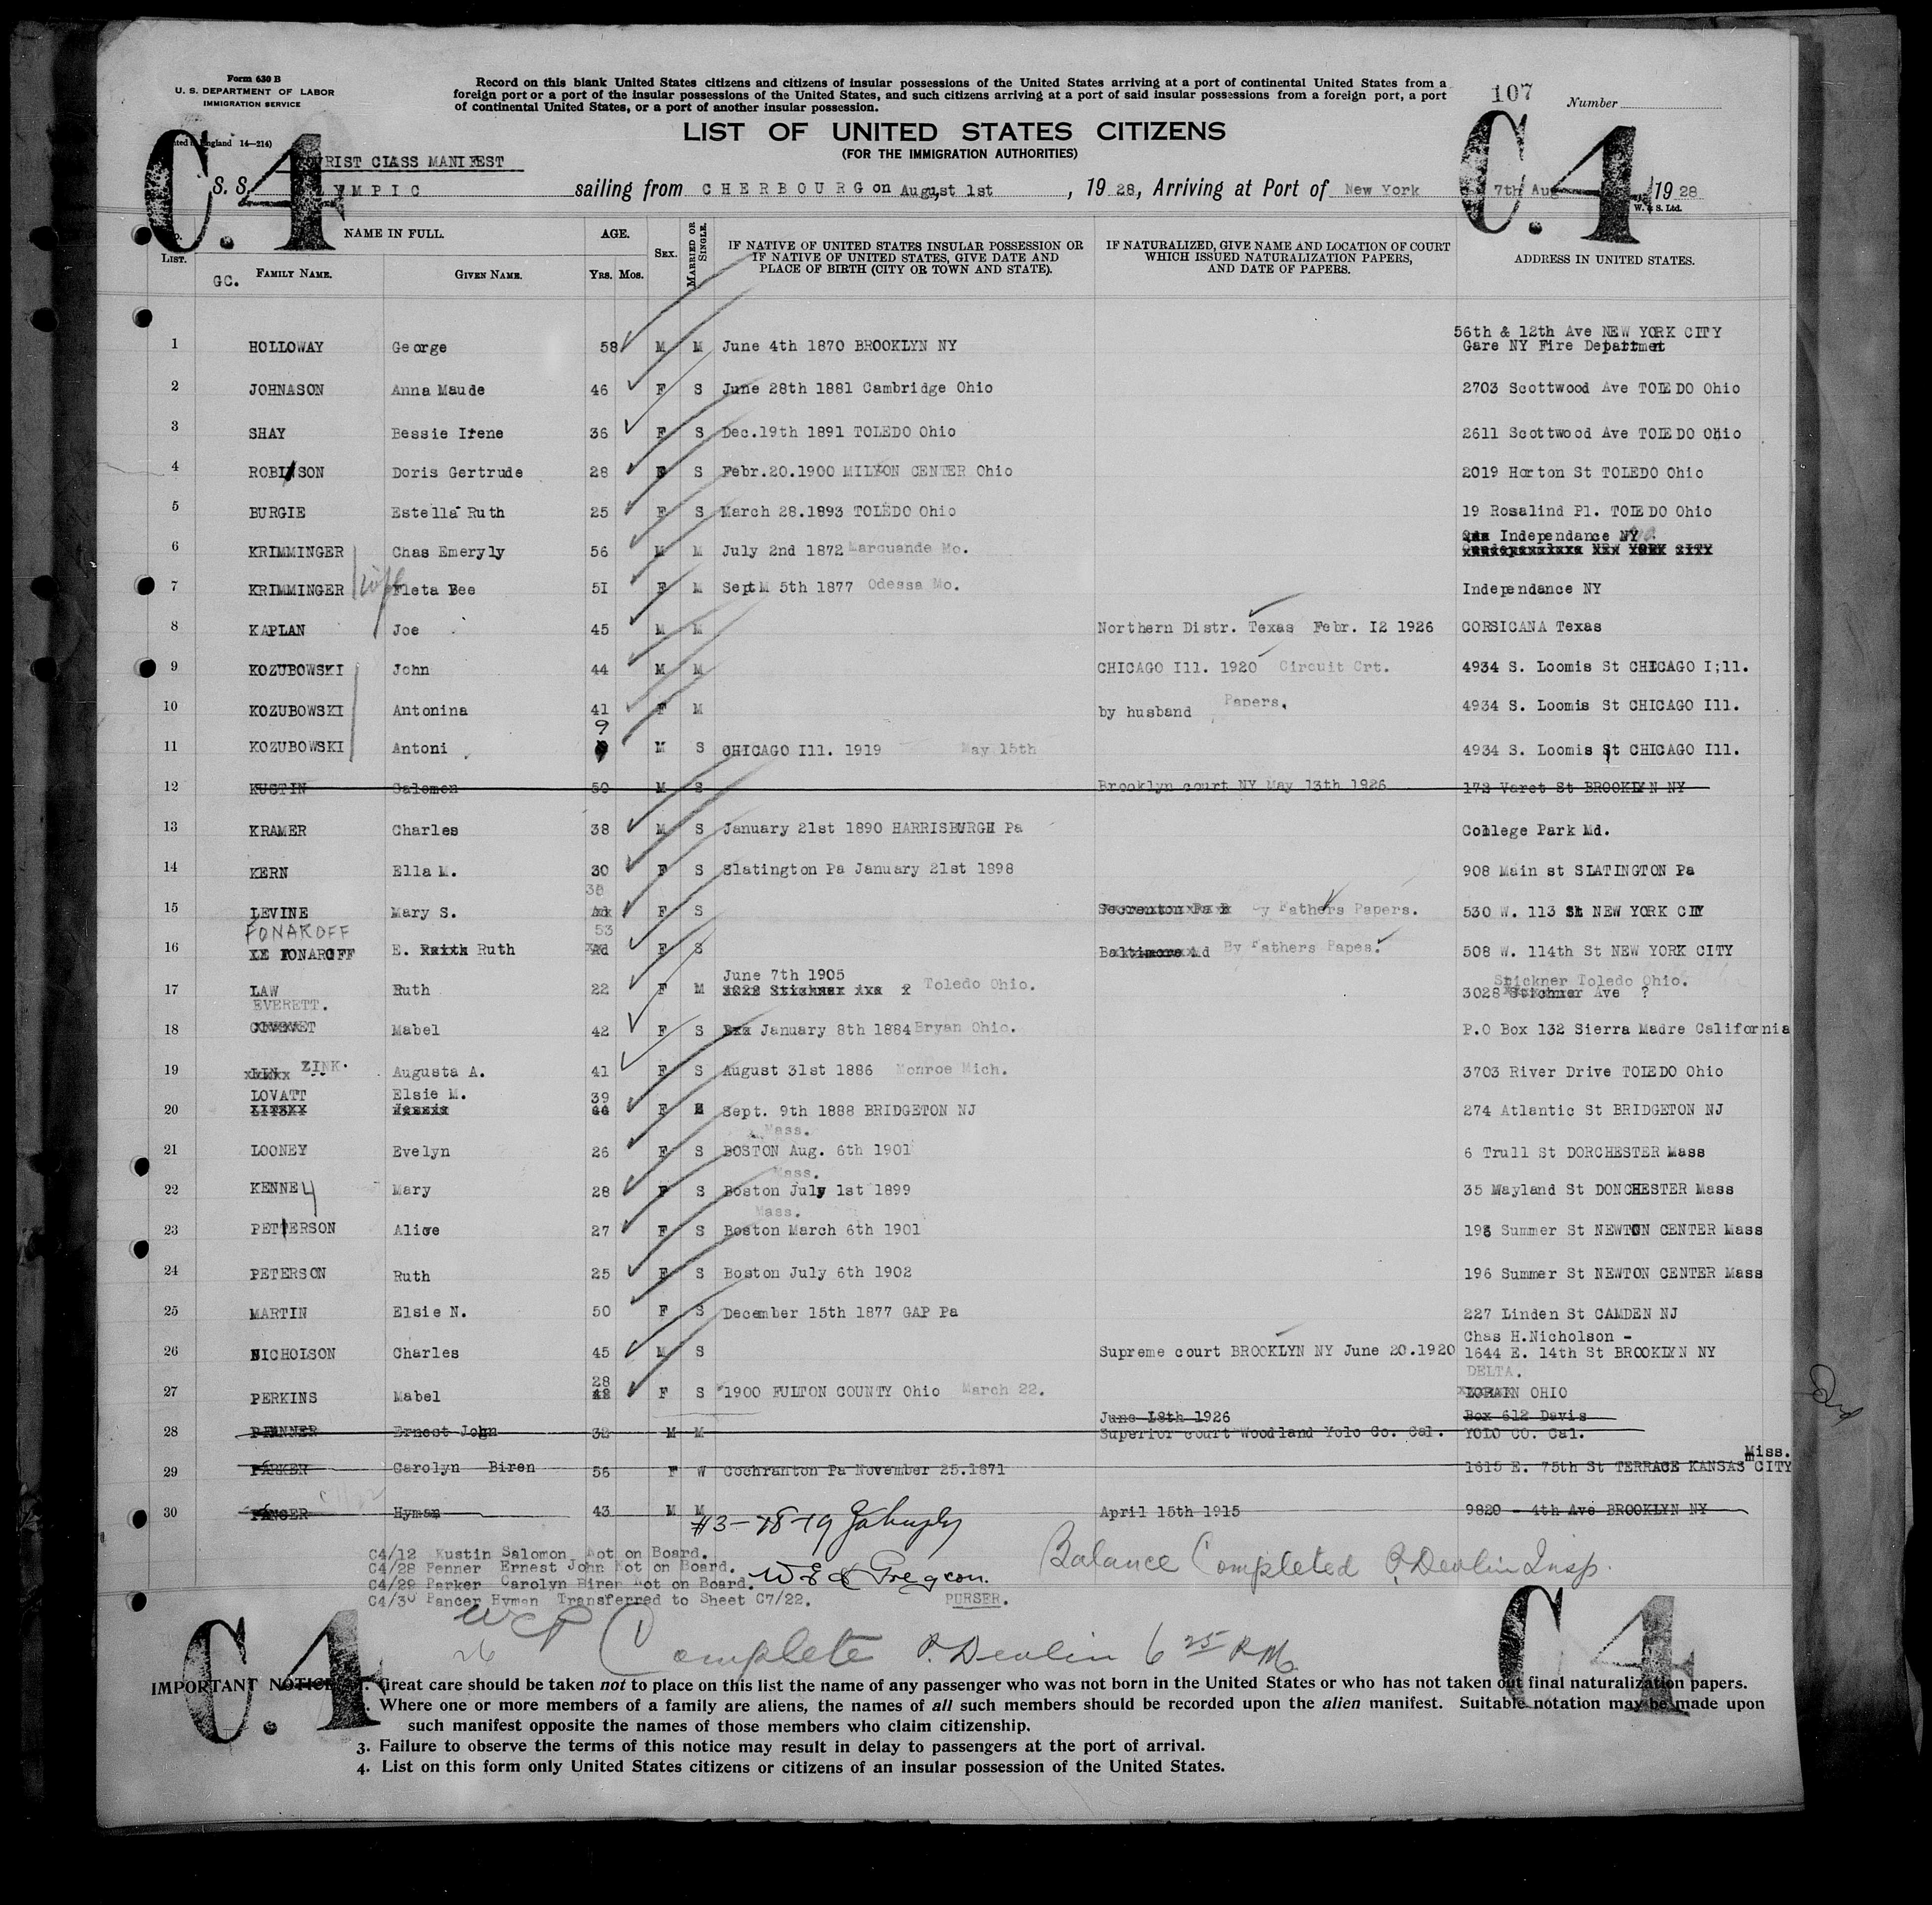 Form 630 B
U. S. DEPARTMENT OF LABOR
IMMIGRATION SERVICE
Record on this blank United States citizens and citizens of insular possessions of the United States arriving at a port of continental United States from a
foreign port or a port of the insular possessions of the United States, and such citizens arriving at a port of said insular possessions from a foreign port, a port
of continental United States, or a port of another insular possession.
107 Number
England 14—214)
LIST OF UNITED STATES CITIZENS
(FOR THE IMMIGRATION AUTHORITIES)
C.4 C.4
TOURIST CLASS MANIFEST
S. S. OLYMPIC sailing from CHERBOURG on August, 1st, 19 28, Arriving at Port of New York 7th Aug 19 28
W. & S. Ltd.
LIST. NAME IN FULL. AGE. SEX. MARRIED OR SINGLE. IF NATIVE OF UNITED STATES INSULAR POSSESSION OR IF NATIVE OF UNITED STATES, GIVE DATE AND PLACE OF BIRTH (CITY OR TOWN AND STATE). IF NATURALIZED, GIVE NAME AND LOCATION OF COURT WHICH ISSUED NATURALIZATION PAPERS, AND DATE OF PAPERS. ADDRESS IN UNITED STATES.
GC. FAMILY NAME. GIVEN NAME. YRS. MOS.
56th & 12th Ave NEW YORK CITY
1 HOLLOWAY George 58 M M June 4th 1870 BROOKLYN NY Gare NY Fire Departmet
2 JOHNASON Anna Maude 46 F S June 28th 1881 Cambridge Ohio 2703 Scottwood Ave TOLEDO Ohio
3 SHAY Bessie Irene 36 F S Dec.19th 1891 TOLEDO Ohio 2611 Scottwood Ave TOLEDO Ohio
4 ROBINSON Doris Gertrude 28 F S Febr.20.1900 MILTON CENTER Ohio 2019 Horton St TOLEDO Ohio
5 BURGIE Estella Ruth 25 F S March 28.1893 TOLEDO Ohio 19 Rosalind Pl. TOLEDO Ohio
Independance NY
6 KRIMMINGER Chas Emeryly 56 M M July 2nd 1872 Marquande Mo. NEW YORK CITY
7 KRIMMINGER wife Fleta Bee 51 F M Sept 5th 1877 Odessa Mo. Independance NY
8 KAPLAN Joe 45 M M Northern Distr. Texas Febr. I2 1926 CORSICANA Texas
9 KOZUBOWSKI John 44 M M CHICAGO Ill. 1920 Circuit Crt. 4934 S. Loomis St CHICAGO I;ll.
10 KOZUBOWSKI Antonina 41 F M by husband Papers. 4934 S. Loomis St CHICAGO Ill.
11 KOZUBOWSKI Antoni 9 M S CHICAGO Ill. 1919 May 15th 4934 S. Loomis St CHICAGO Ill.
12 KUSTIN Salomon 50 M S Brooklyn court NY May 13th 1926 172 Varet St BROOKLYN NY
13 KRAMER Charles 38 M S January 21st 1890 HARRISBURGH Pa College Park Md.
14 KERN Ella M. 30 F S Slatington Pa January 21st 1898 908 Main st SLATINGTON Pa
38
15 LEVINE Mary S. F S By Fathers Papers. 530 W. 113 St NEW YORK CITY
FONAROFF 53
16 FONAROFF E. Ruth F S Baltimore By Fathers Papes. 508 W. 114th St NEW YORK CITY
June 7th 1905 Stickner Toledo Ohio.
17 LAW Ruth 22 F M Toledo Ohio. 3028 Stichner Ave ?
EVERETT.
18 Mabel 42 F S January 8th 1884 Bryan Ohio. P.O Box 132 Sierra Madre California
19 ZINK. Augusta A. 41 F S August 31st 1886 Monroe Mich. 3703 River Drive TOLEDO Ohio
LOVATT Elsie M. 39
20 F Sept. 9th 1888 BRIDGETON NJ 274 Atlantic St BRIDGETON NJ
Mass.
21 LOONEY Evelyn 26 F S BOSTON Aug. 6th 1901 6 Trull St DORCHESTER Mass
Mass.
22 KENNEY Mary 28 F S Boston July 1st 1899 35 Wayland St DONCHESTER Mass
Mass.
23 PETTERSON Alice 27 F S Boston March 6th 1901 193 Summer St NEWTON CENTER Mass
24 PETERSON Ruth 25 F S Boston July 6th 1902 196 Summer St NEWTON CENTER Mass
25 MARTIN Elsie N. 50 F S December 15th 1877 GAP Pa 227 Linden St CAMDEN NJ
Chas H.Nicholson -
26 NICHOLSON Charles 45 M S Supreme court BROOKLYN NY June 20.1920 1644 E. 14th St BROOKLYN NY
28 DELTA.
27 PERKINS Mabel F S 1900 FULTON COUNTY Ohio March 22. LORAIN OHIO
June 18th 1926 Box 612 Davis
28 Ernest John 32 M M Superior court Woodland Yolo Co. Cal. YOLO CO. Cal.
Miss.
29 PARKER Carolyn Biren 56 F W Cochranton Pa November 25.1871 1615 E. 75th St TERRACE KANSAS CITY
30 PANCER Hyman 43 M M April 15th 1915 9820 - 4th Ave BROOKLYN NY
#3-18-19
C4/12 Kustin Salomon Not on Board.
C4/28 Fenner Ernest John Not on Board.
C4/29 Parker Carolyn Biren Not on Board.
C4/30 Pancer Hyman Transferred to Sheet C7/22.
PURSER.
Balance Completed P. Devlin Insp.
26 Complete P. Devlin 6 25 P.M.
C.4 C.4
IMPORTANT NOTICE 1. Great care should be taken not to place on this list the name of any passenger who was not born in the United States or who has not taken out final naturalization papers.
Where one or more members of a family are aliens, the names of all such members should be recorded upon the alien manifest. Suitable notation may be made upon
such manifest opposite the names of those members who claim citizenship.
3. Failure to observe the terms of this notice may result in delay to passengers at the port of arrival.
4. List on this form only United States citizens or citizens of an insular possession of the United States.